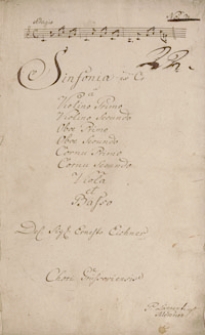 Allegro
22.
Sinfonia in C
a
Violino Primo
Violino Secondo
Oboe Primo
Oboe Secondo
Cornu Primo
Cornu Secundo
Viola
et
Basso
Del Sigl Ernesto Eichner
Chori